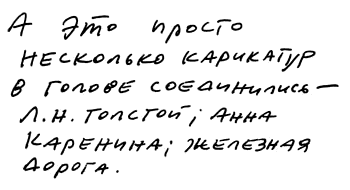 А это просто
несколько карикатур
в голове соединились —
Л.Н. Толстой; Анна
Каренина; железная
дорога.